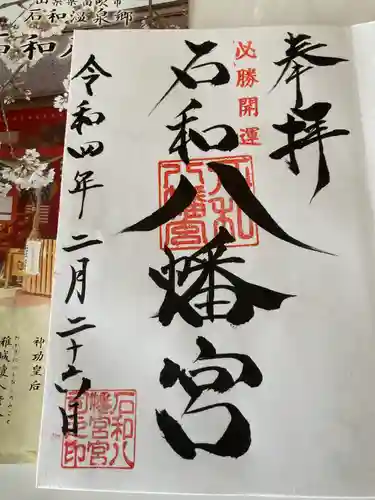 奉拝
必勝開運
石和八幡宮
石和八幡宮
令和四年二月二十六日
石和八幡宮宮司之印
石和温泉郷
石和八
神功皇后